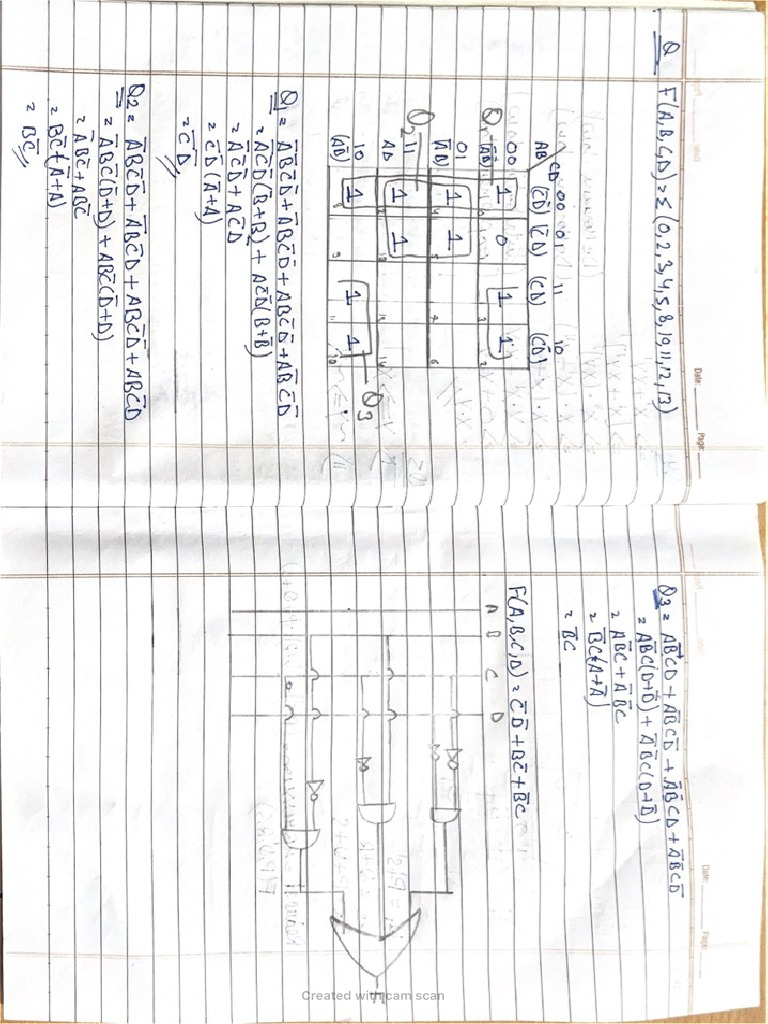 Q F(A,B,C,D) = Σ (0,2,3,4,5,8,10,11,12,13)
AB CD 00 01 11 10
(C̅D̅) (C̅D) (CD) (CD̅)
00 A̅B̅ 1 0 1 1
01 A̅B 1 1
11 AB 1 1
10 (AB̅) 1 1 1
Q1
Q2
Q3
Q1 = A̅B̅C̅D̅ + A̅BC̅D̅ + ABC̅D̅ + AB̅C̅D̅
= A̅C̅D̅(B̅+B) + AC̅D̅(B+B̅)
= A̅C̅D̅ + AC̅D̅
= C̅D̅ (A̅+A)
= C̅D̅
Q2 = A̅BC̅D̅ + A̅BC̅D + ABC̅D̅ + ABC̅D
= A̅BC̅(D̅+D) + ABC̅(D̅+D)
= A̅BC̅ + ABC̅
= BC̅(A̅+A)
= BC̅
Date: Page:
Q3 = A̅B̅CD + A̅B̅CD̅ + AB̅CD + AB̅CD̅
= A̅B̅C(D+D̅) + AB̅C(D+D̅)
= A̅B̅C + AB̅C
= B̅C(A+A̅)
= B̅C
F(A,B,C,D) = C̅D̅ + BC̅ + B̅C
A B C D
F
Date: Page:
Created with cam scan